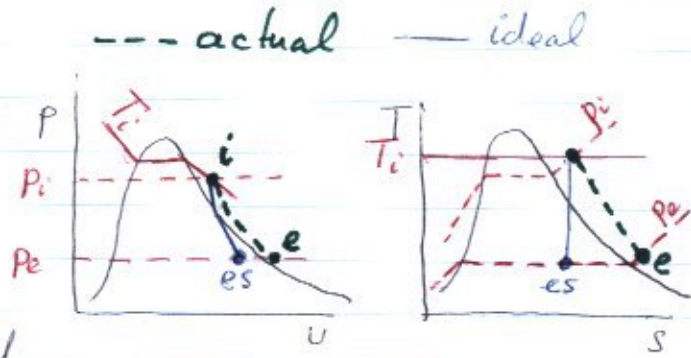 --- actual — ideal
P
Ti
i
Pi
Pe
e
es
υ
T
Ti
Pi
Pe
e
es
s